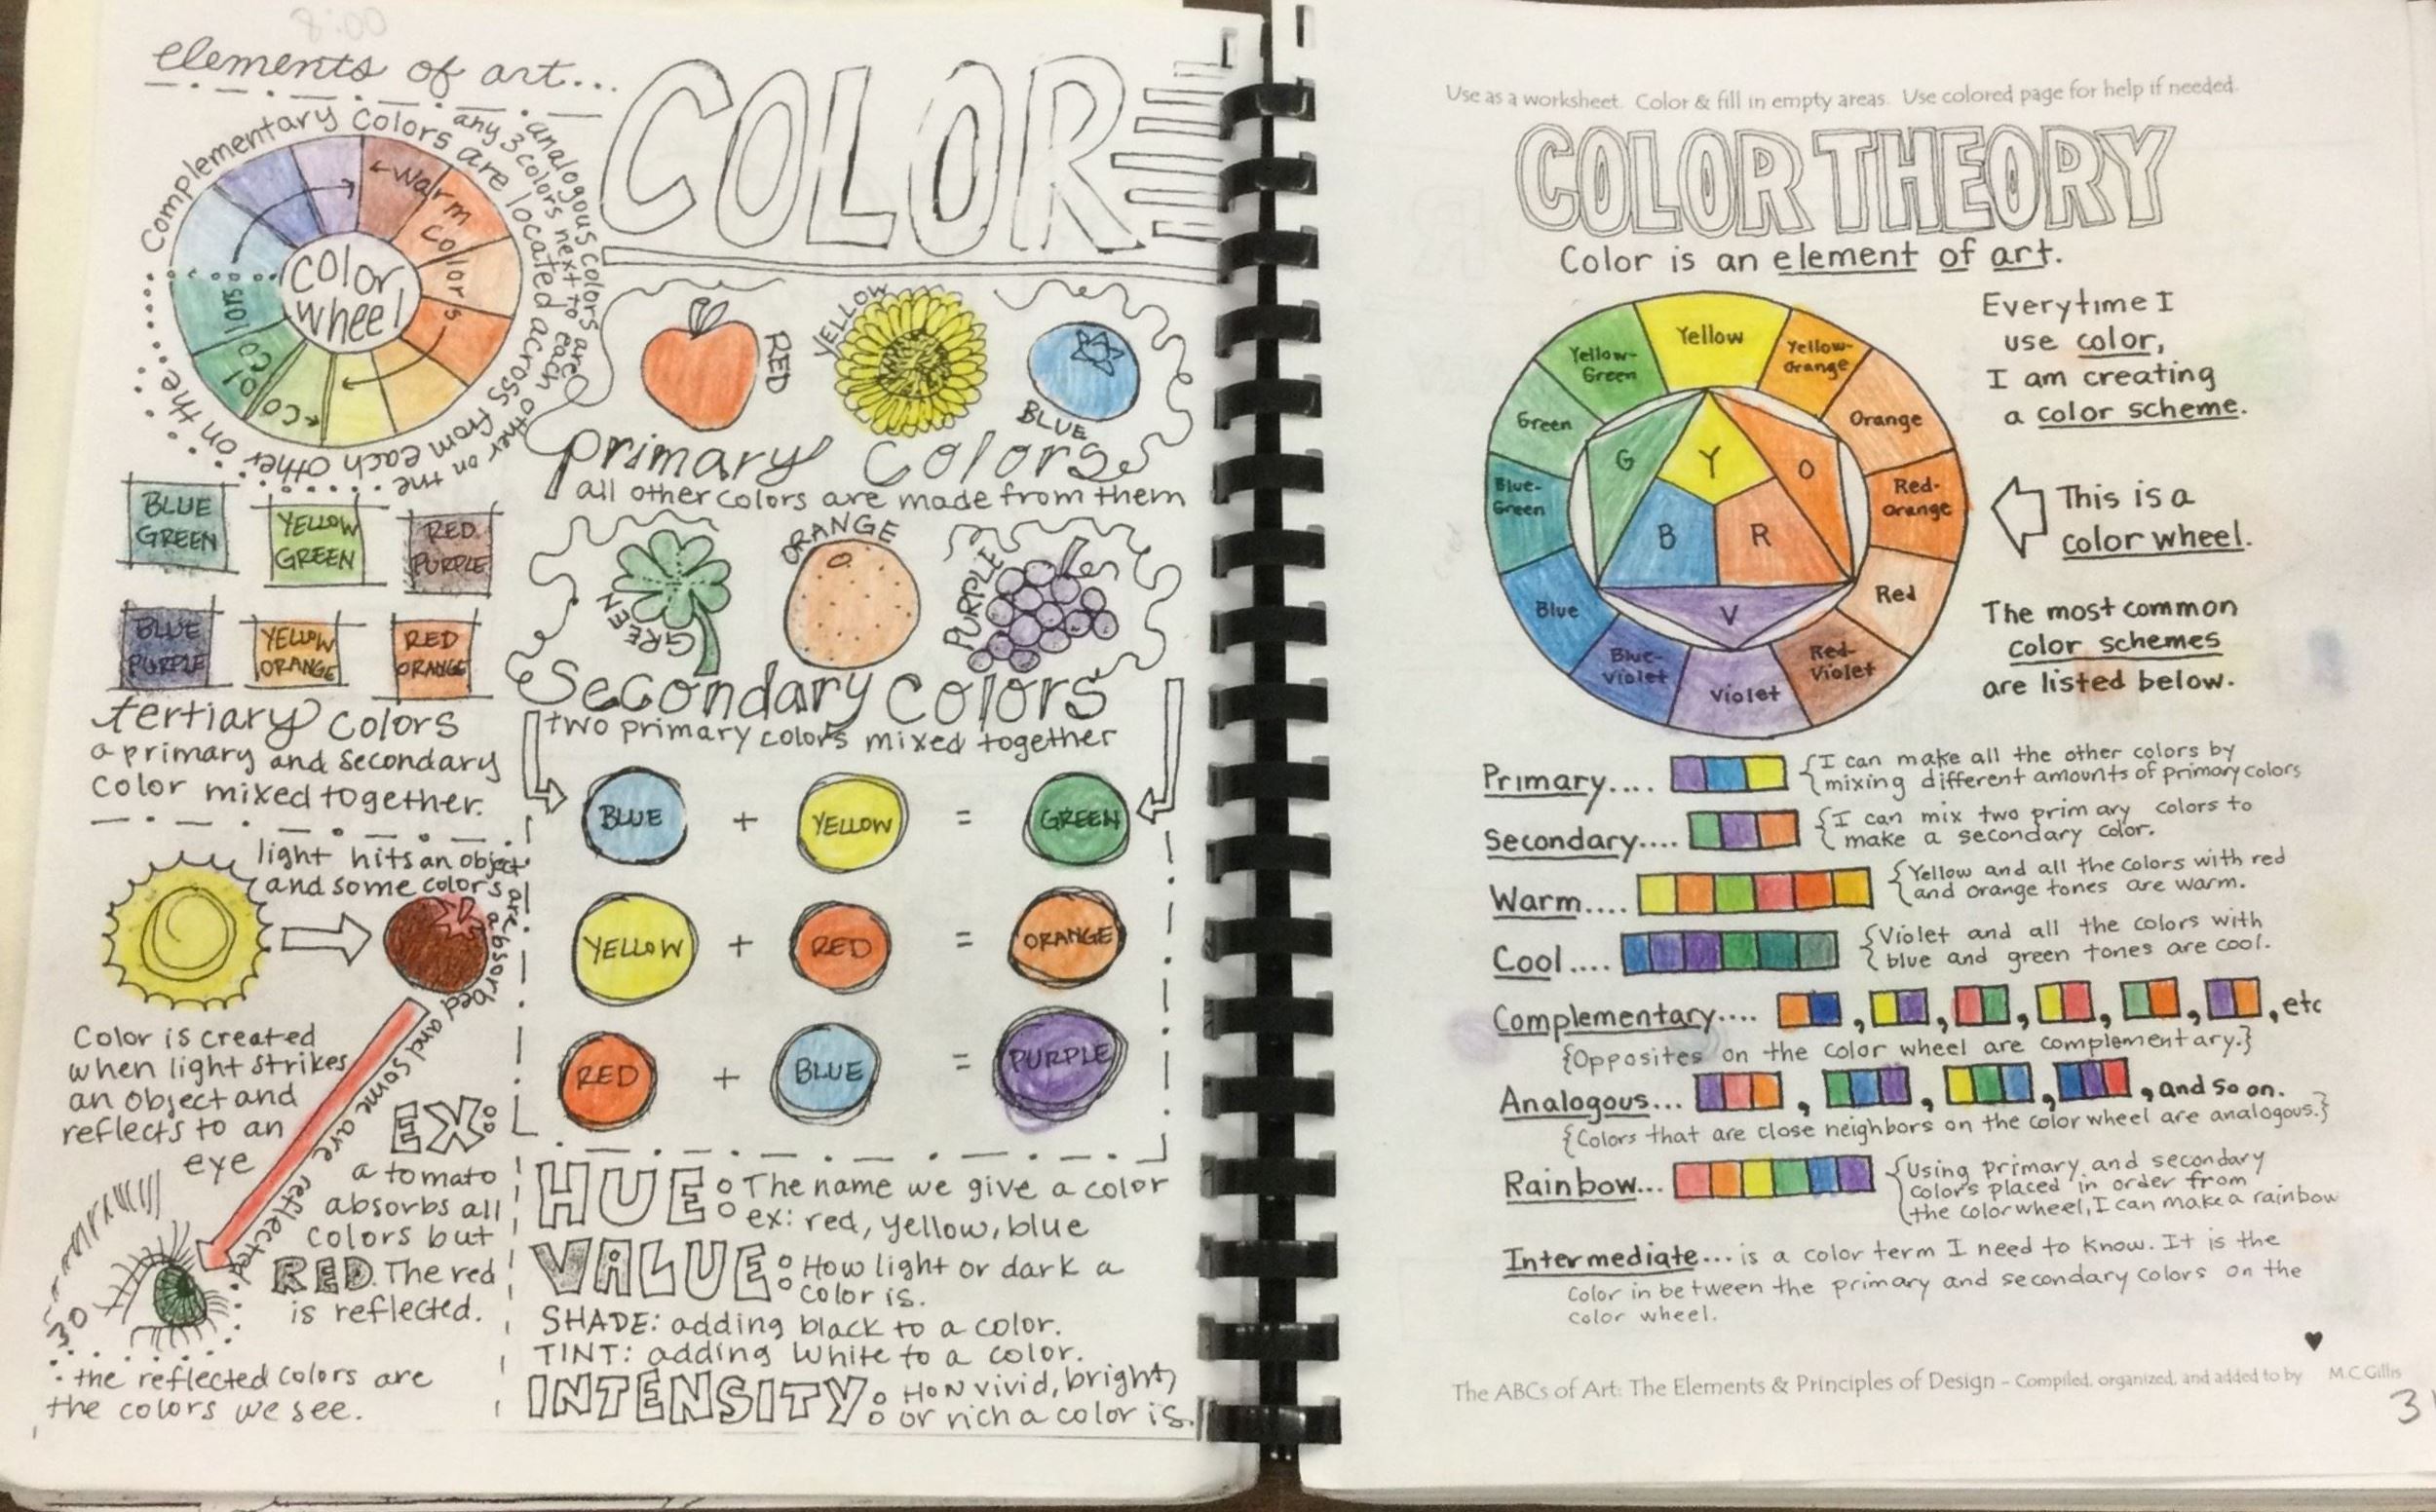 elements of art...
COLOR
Complementary Colors are located across from each other on the
analogous colors are
any 3 colors next to each other on the
← warm colors
color
wheel
cool colors
RED
YELLOW
BLUE
primary colors
all other colors are made from them
GREEN
ORANGE
PURPLE
Secondary colors
two primary colors mixed together
BLUE + YELLOW = GREEN
YELLOW + RED = ORANGE
RED + BLUE = PURPLE
BLUE
GREEN
YELLOW
GREEN
RED
PURPLE
BLUE
PURPLE
YELLOW
ORANGE
RED
ORANGE
tertiary colors
a primary and secondary
color mixed together.
light hits an object
and some colors are absorbed and some are reflected.
Color is created
when light strikes
an object and
reflects to an
eye
EX:
a tomato
absorbs all
colors but
RED. The red
is reflected.
so
the reflected colors are
the colors we see.
HUE: The name we give a color
ex: red, yellow, blue
VALUE: How light or dark a
color is.
SHADE: adding black to a color.
TINT: adding white to a color.
INTENSITY: How vivid, bright,
or rich a color is.
Use as a worksheet. Color & fill in empty areas. Use colored page for help if needed.
COLOR THEORY
Color is an element of art.
Yellow
Yellow-
Orange
Orange
Red-
Orange
Red
Red-
Violet
Violet
Blue-
Violet
Blue
Blue-
Green
Green
Yellow-
Green
G
Y
O
B
R
V
Everytime I
use color,
I am creating
a color scheme.
This is a
color wheel.
The most common
color schemes
are listed below.
Primary.... {I can make all the other colors by
mixing different amounts of primary colors
Secondary.... {I can mix two primary colors to
make a secondary color.
Warm.... {Yellow and all the colors with red
and orange tones are warm.
Cool.... {Violet and all the colors with
blue and green tones are cool.
Complementary.... , , , , , , etc
{Opposites on the color wheel are complementary.}
Analogous... , , , , and so on.
{Colors that are close neighbors on the color wheel are analogous.}
Rainbow... {Using primary and secondary
colors placed in order from
the color wheel, I can make a rainbow
Intermediate... is a color term I need to know. It is the
color in between the primary and secondary colors on the
color wheel.
The ABCs of Art: The Elements & Principles of Design - Compiled, organized, and added to by M.C.Gillis